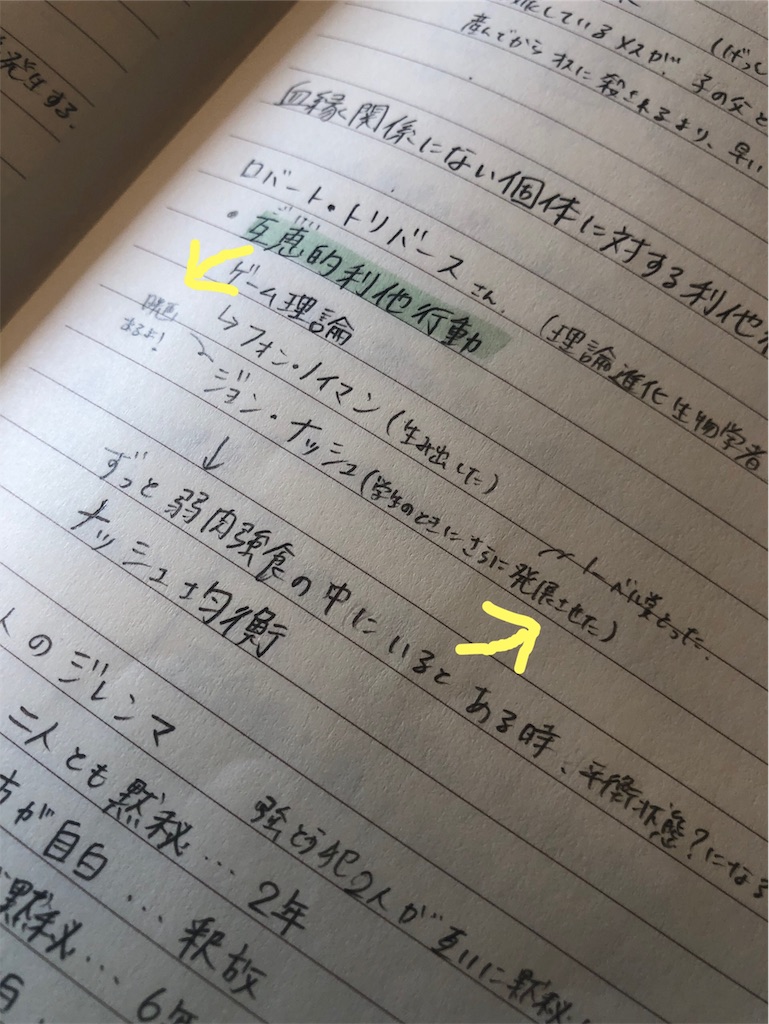 発生する。
しているメスが、子の父と
産んでからオスに殺されるより、早い
血縁関係にない個体に対する利他
ロバート・トリバースさん。(理論進化生物学者
・互恵的利他行動
ごけい
ゲーム理論
映画あるよ!
↳フォン・ノイマン(生み出した)
ジョン・ナッシュ(学生のときにさらに発展させた)
ノーベル賞とった。
↓
ずっと弱肉強食の中にいるとある時、平衡状態?になる
ナッシュ均衡
人のジレンマ
強とう犯2人が互いに黙秘
二人とも黙秘…2年
方が自白…釈放
黙秘…6年